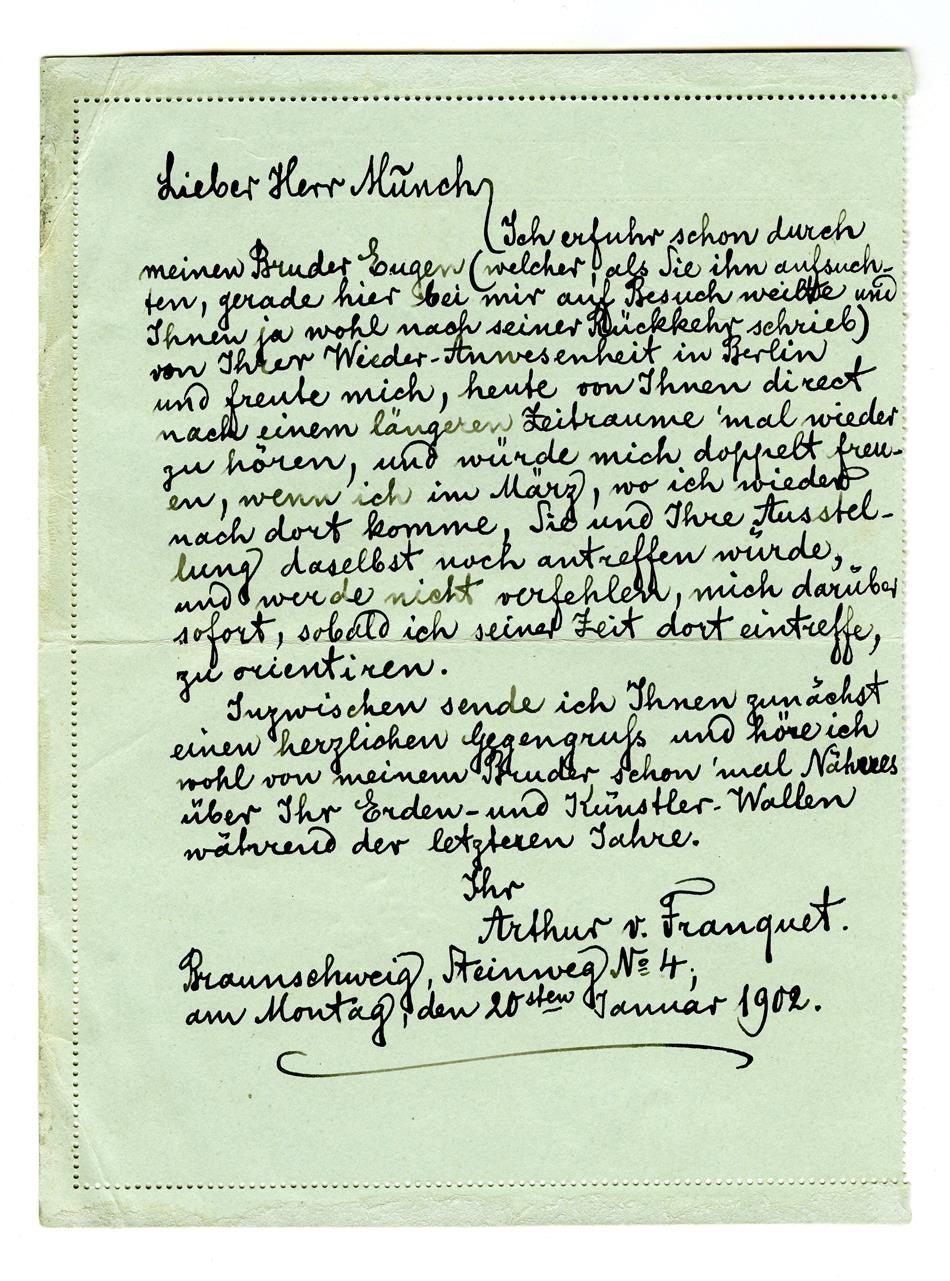 Lieber Herr Munch,
Ich erfuhr schon durch
meinen Bruder Eugen (welcher, als Sie ihn aufsuch-
ten, gerade hier bei mir auf Besuch weilte und
Ihnen ja wohl nach seiner Rückkehr schrieb)
von Ihrer Wieder-Anwesenheit in Berlin
und freute mich, heute von Ihnen direct
nach einem längeren Zeitraume 'mal wieder
zu hören, und würde mich doppelt freu-
en, wenn ich im März, wo ich wieder
nach dort komme, Sie und Ihre Ausstel-
lung daselbst noch antreffen würde,
und werde nicht verfehlen, mich darüber
sofort, sobald ich seiner Zeit dort eintreffe,
zu orientiren.
Inzwischen sende ich Ihnen zunächst
einen herzlichen Gegengruß und höre ich
wohl von meinem Bruder schon 'mal Näheres
über Ihr Erden- und Künstler-Wallen
während der letzteren Jahre.
Ihr
Arthur v. Franquet.
Braunschweig, Steinweg No 4,
am Montag, den 20sten Januar 1902.